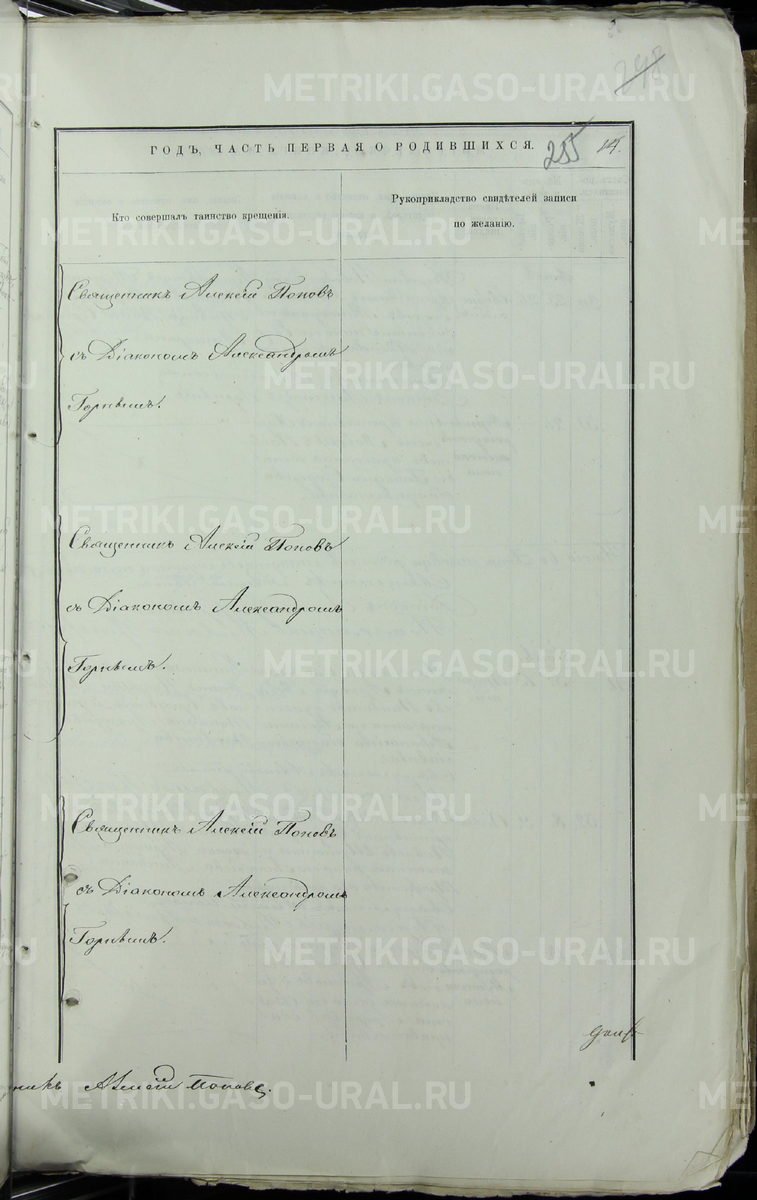 248
ГОДЪ, ЧАСТЬ ПЕРВАЯ О РОДИВШИХСЯ. 255 14.
Кто совершалъ таинство крещенія.
Рукоприкладство свидѣтелей записи
по желанію.
Священникъ Алексій Поповъ
съ Діакономъ Александромъ
Горнымъ.
Священникъ Алексій Поповъ
съ Діакономъ Александромъ
Горнымъ.
Священникъ Алексій Поповъ
съ Діакономъ Александромъ
Горнымъ.
никъ Алексій Поповъ.
METRIKI.GASO-URAL.RU